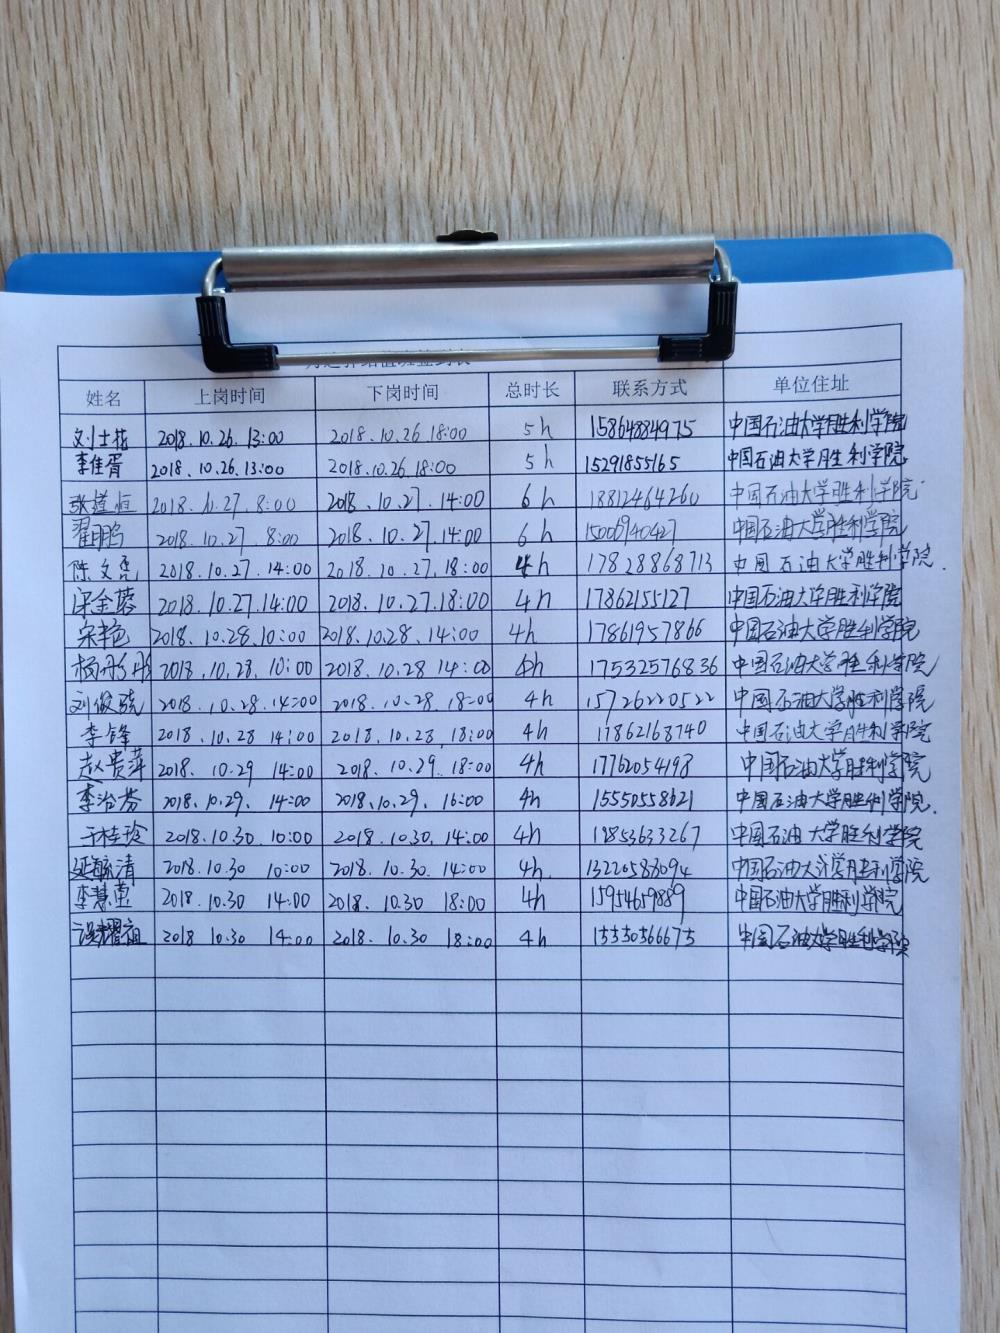 值班签到表
姓名 上岗时间 下岗时间 总时长 联系方式 单位住址
刘士花 2018.10.26.13:00 2018.10.26.18:00 5h 15864884975 中国石油大学胜利学院
李佳胥 2018.10.26.13:00 2018.10.26.18:00 5h 15291855165 中国石油大学胜利学院
2018.10.27.8:00 2018.10.27.14:00 6h 18812464260 中国石油大学胜利学院
翟鹏 2018.10.27.8:00 2018.10.27.14:00 6h 15006940427 中国石油大学胜利学院
陈文亮 2018.10.27.14:00 2018.10.27.18:00 4h 17828868713 中国石油大学胜利学院.
宋金蓉 2018.10.27.14:00 2018.10.27.18:00 4h 17862155127 中国石油大学胜利学院
宋艳 2018.10.28.10:00 2018.10.28.14:00 4h 17861957866 中国石油大学胜利学院
杨彤彤 2018.10.28.10:00 2018.10.28 14:00 4h 17532576836 中国石油大学胜利学院
刘俊骁 2018.10.28.14:00 2018.10.28.18:00 4h 15726220522 中国石油大学胜利学院
李锋 2018.10.28 14:00 2018.10.28.18:00 4h 17862168740 中国石油大学胜利学院
赵贵萍 2018.10.29 14:00 2018.10.29.18:00 4h 17762054198 中国石油大学胜利学院
李治芬 2018.10.29.14:00 2018.10.29.16:00 4h 15550558621 中国石油大学胜利学院.
于桂玲 2018.10.30 10:00 2018.10.30.14:00 4h 19853633267 中国石油大学胜利学院
延毓清 2018.10.30 10:00 2018.10.30.14:00 4h. 13220588094 中国石油大学胜利学院
李慧 2018.10.30 14:00 2018.10.30 18:00 4h 15954659889 中国石油大学胜利学院
耀祖 2018.10.30 14:00 2018.10.30 18:00 4h 15550566675 中国石油大学胜利学院